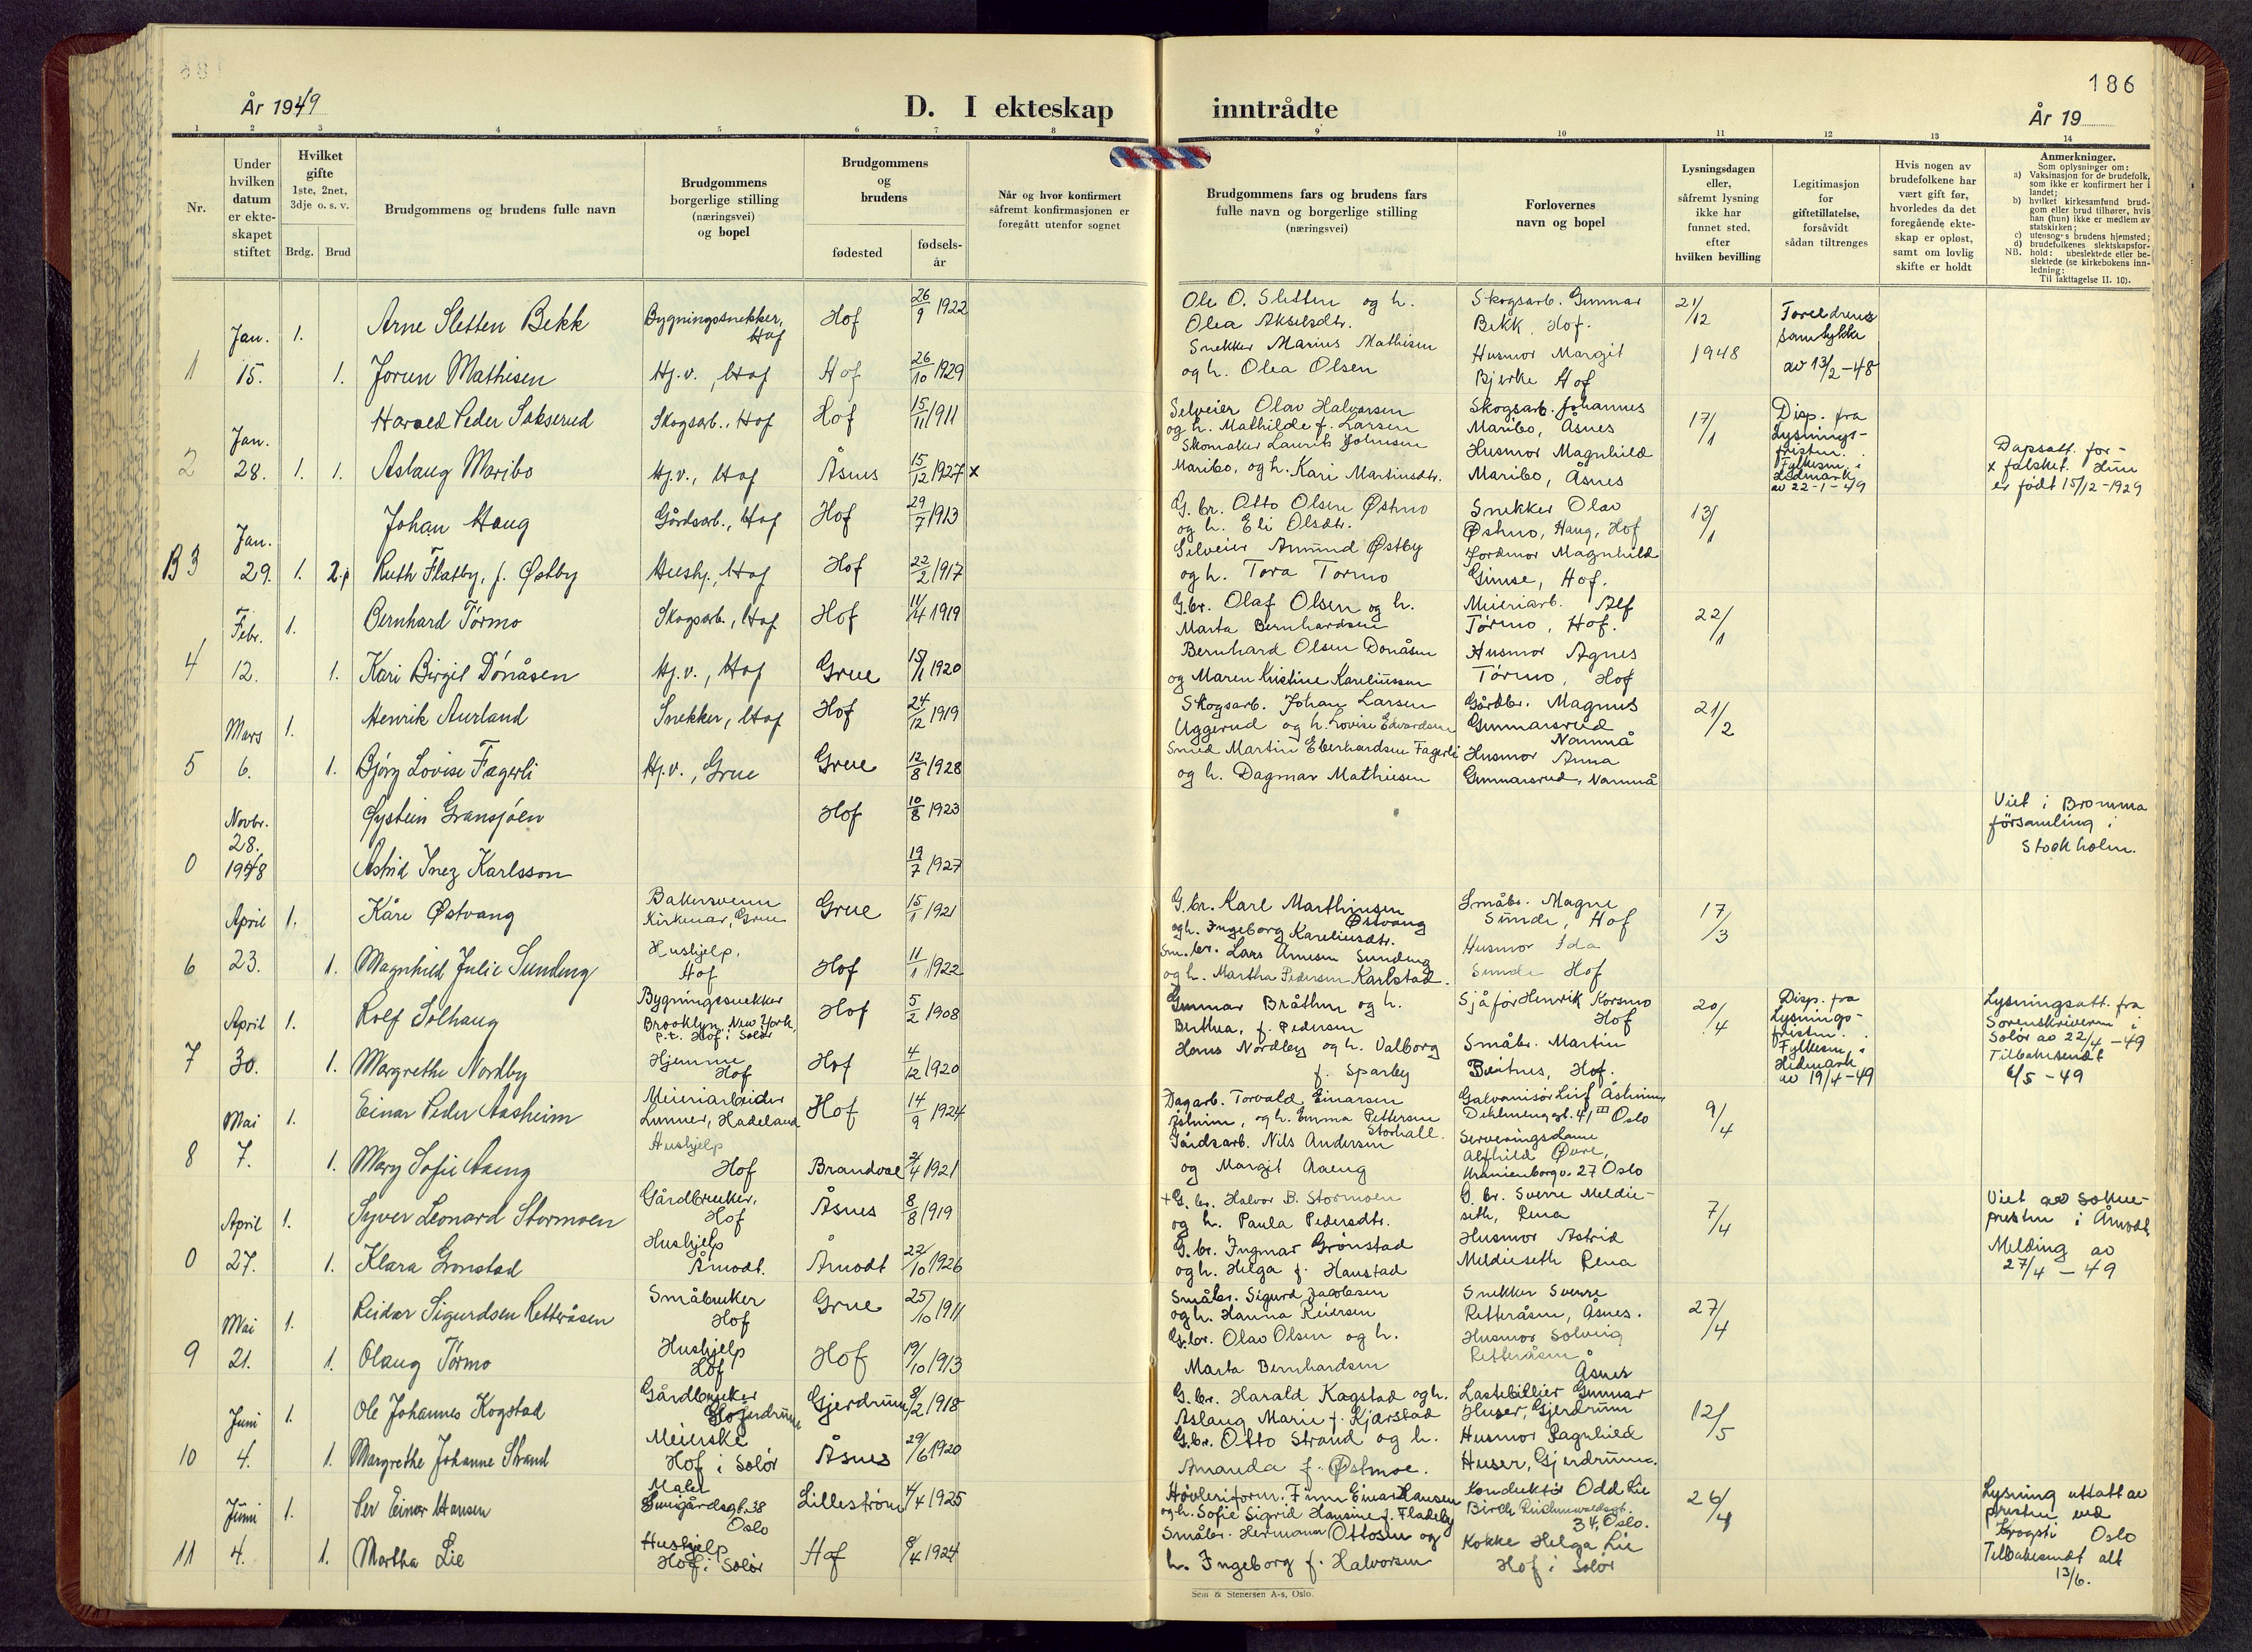 186
År 1949
D. I ekteskap inntrådte
År 19
1 2 3 4 5 6 7 8 9 10 11 12 13 14
Nr.
Under hvilken datum er ekteskapet stiftet
Hvilket gifte
1ste, 2net, 3dje o. s. v.
Brdg. Brud
Brudgommens og brudens fulle navn
Brudgommens borgerlige stilling (næringsvei) og bopel
Brudgommens og brudens
fødested
fødsels-år
Når og hvor konfirmert såfremt konfirmasjonen er foregått utenfor sognet
Brudgommens fars og brudens fars fulle navn og borgerlige stilling (næringsvei)
Forlovernes navn og bopel
Lysningsdagen eller, såfremt lysning ikke har funnet sted, efter hvilken bevilling
Legitimasjon for giftetillatelse, forsåvidt sådan tiltrenges
Hvis nogen av brudefolkene har vært gift før, hvorledes da det foregående ekteskap er opløst, samt om lovlig skifte er holdt
Anmerkninger.
Som oplysninger om:
a) Vaksinasjon for de brudefolk, som ikke er konfirmert her i landet;
b) hvilket kirkesamfund brudgom eller brud tilhører, hvis han (hun) ikke er medlem av statskirken;
c) utensogns brudens hjemsted;
d) brudefolkenes slektskapsforhold: ubeslektede eller beslektede (se kirkebokens innledning:
NB. Til iakttagelse II. 10).
1 Jan. 15. 1. Arne Sletten Bekk Bygningssnekker, Hof Hof 26/9 1922 Ole O. Sletten og h. Olea Akselsdtr. Skogsarb. Gunnar Bekk, Hof. 21/12 1948 Foreldrenes samtykke av 13/2-48
1. Jorun Mathisen Hj.v., Hof Hof 26/10 1929 Snekker Marius Mathisen og h. Olea Olsen Husmor Margit Bjerke Hof
2 Jan. 28. 1. Harald Peder Sakserud Skogsarb., Hof Hof 15/11 1911 Selveier Olav Halvorsen og h. Mathilde f. Larsen Skogsarb. Johannes Maribo, Åsnes 17/1 Disp. fra Lysningsfristen. Fylkesm. i Hedmark av 22-1-49
1. Aslaug Maribo Hj.v., Hof Åsnes 15/12 1927 x Skomaker Laurits Johnsen Maribo, og h. Kari Martinsdtr. Husmor Magnhild Maribo, Åsnes Dapsatt. for- x falsket. Hun er født 15/12-1929
B 3 Jan. 29. 1. Johan Haug Gårdsarb., Hof Hof 29/7 1913 G.br. Otto Olsen Østmo og h. Eli Olsdtr. Snekker Olav Østmo, Haug, Hof 13/1
2. Ruth Flatby, f. Østby Hushj., Hof Hof 22/2 1917 Selveier Amund Østby og h. Tora Tormo Jordmor Magnhild Gimse, Hof.
4 Febr. 12. 1. Bernhard Tørmo Skogsarb., Hof Hof 11/4 1919 G.br. Olaf Olsen og h. Marta Bernhardsen Meieriarb. Alf Tørmo, Hof. 22/1
1. Kari Birgit Dónåsen Hj.v., Hof Grue 15/1 1920 Bernhard Olsen Donåsen og Maren Kristine Kareliussen Husmor Agnes Tørmo, Hof
5 Mars 6. 1. Henrik Aurland Snekker, Hof Hof 24/12 1919 Skogsarb. Johan Larsen Uggerud og h. Lovise Edvardsen Gårdbr. Magnus Gunnarsrud Namnå 21/2
1. Bjørg Lovise Fagerli Hj.v., Grue Grue 12/8 1928 Smed Martin Eberhardsen Fagerli og h. Dagmar Mathiesen Husmor Anna Gunnarsrud, Namnå
0 Novbr. 28. 1948 Øystein Gransjøen Hof 10/8 1923 Viet i Bromma församling i Stockholm.
Astrid Inez Karlsson 19/7 1927
6 April 23. 1. Kåre Østvang Bakersvenn Kirkenær, Grue Grue 15/1 1921 G.br. Karl Marthinsen Østvang og h. Ingeborg Kareliusdtr. Småbr. Magne Sunde, Hof 17/3
1. Magnhild Julie Sundeng Hushjelp, Hof Hof 11/1 1922 Sm.br. Lars Arnesen Sundeng og h. Martha Pedersen Karlstad. Husmor Ida Sunde Hof
7 April 30. 1. Rolf Solhaug Bygningssnekker Brooklyn, New York, p.t. Hof i Solør Hof 5/2 1908 Gunnar Bråthen og h. Berthea, f. Pedersen Sjåfør Henrik Korsmo Hof 20/4 Disp. fra Lysningsfristen. Fylkesm. i Hedmark av 19/4-49 Lysningsatt. fra Sorenskriveren i Solør av 22/4-49 Tilbakesendt 6/5-49
1. Margrethe Nordby Hjemme Hof Hof 4/12 1920 Hans Nordby og h. Valborg f. Sparby Småbr. Martin Beitnes, Hof.
8 Mai 7. 1. Einar Peder Aasheim Meieriarbeider Lunner, Hadeland Hof 14/9 1924 Dagarb. Torvald Einarsen Åsheim, og h. Emma Pettersen Storhall. Galvanisør Leif Åsheim Dehlenenggt. 41 III Oslo 9/4
1. Mary Sofie Aaeng Hushjelp Hof Brandval 1921 Gårdsarb. Nils Andersen og Margit Aaeng Serveringsdame Alfhild Øvre, Uranienborgv. 27 Oslo
0 April 27. 1. Syver Leonard Stormoen Gårdbruker, Hof Åsnes 8/8 1919 + G.br. Halvor B. Stormoen og h. Paula Pedersdtr. G.br. Sverre Meldieseth, Rena 7/4 Viet av Sokneprestn i Åmodt Melding av 27/4-49
1. Klara Grønstad Hushjelp Åmodt. Åmodt 22/10 1926 G.br. Ingmar Grønstad og h. Helga f. Haustad Husmor Astrid Meldieseth Rena
9 Mai 21. 1. Reidar Sigurdsen Retteråsen Småbruker Hof Grue 25/10 1911 Småbr. Sigurd Jacobsen og h. Hanna Reiersen Snekker Sverre Retteråsen, Åsnes. 27/4
1. Olaug Tørmo Hushjelp Hof Hof 19/10 1913 G.br. Olav Olsen og h. Marta Bernhardsen Husmor Solveig Retteråsen Åsnes
10 Juni 4. 1. Ole Johannes Kogstad Gårdbruker Gjerdrum Gjerdrum 1918 G.br. Harald Kogstad og h. Aslaug Marie f. Kjærstad Lastebileier Gunnar Huser, Gjerdrum 12/5
1. Margrethe Johanne Strand Meierske Hof i Solør Åsnes 29/6 1920 G.br. Otto Strand og h. Amanda f. Østmoe. Husmor Ragnhild Huser, Gjerdrum.
11 Juni 4. 1. Per Einar Hansen Maler 38 Oslo Lillestrøm 4/4 1925 Høvleriform. Finn Einar Hansen og h. Sofie Sigrid Hansine f. Fladeby Konduktør Odd Lie Birch Reichenwaldsgt. 34, Oslo. 26/4 Lysning utsatt av presten ved Oslo Tilbakesendt alt 13/6.
1. Martha Lie Hushjelp Hof i Solør Hof 1924 Småbr. Hermann Ottosen og h. Ingeborg f. Halvorsen Kokke Helga Lie Hof i Solør
Sem & Stenersen A-s, Oslo.